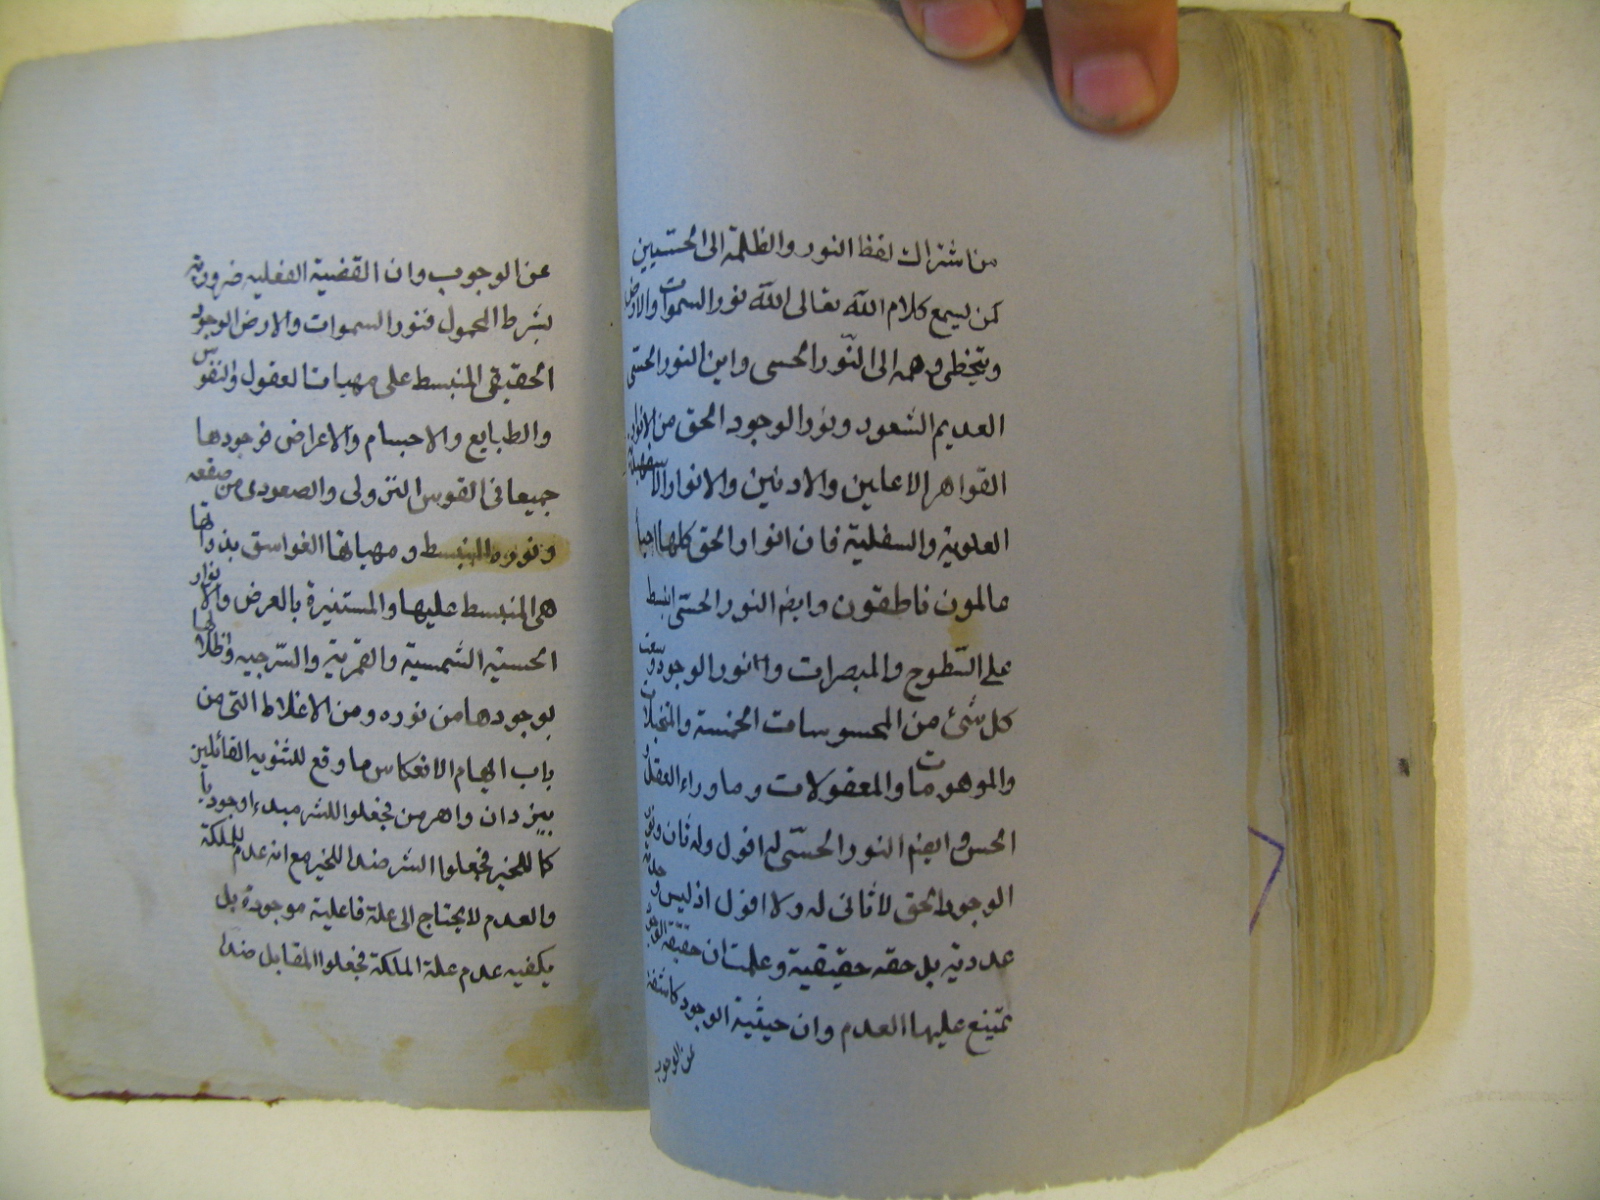 من اشتراك لفظ النور والظلمة الى الحسيين
كمن يسمع كلام الله تعالى الله نور السموات والارض
ويتخطى وهمه الى النور الحسى واين النور الحسى
العديم الشعور ونور الوجود الحق من الانوار
القواهر الاعلين والادنين والانوار الاسفهبدية
العلوية والسفلية فان انوار الحق كلها احياء
عالمون ناطقون وايضا النور الحسى انبسط
على السطوح والمبصرات واما نور الوجود وسعت
كل شئ من المحسوسات الخمسة والمتخيلات
والموهومات والمعقولات وما وراء العقل و
الحس وايضا النور الحسى له افول وله ثان ونور
الوجود الحق لا ثانى له ولا افول اذ ليس وحدته
عددية بل حقة حقيقية وعلمت ان حقيقة الوجود
يمتنع عليها العدم وان حيثية الوجود كاشفة
عن الوجوب
عن الوجوب وان القضية الفعلية ضرورية
بشرط المحمول فنور السموات والارض الوجود
الحقيقى المنبسط على مهيات العقول والنفوس
والطبايع والاجسام والاعراض فوجودها
جميعا فى القوس النزولى والصعودى من صقعه
ونوره المنبسط ومهياتها الغواسق بذواتها
هى المنبسط عليها والمستنيرة بالعرض والانوار
الحسية الشمسية والقمرية والسرجيه واظلالها
بوجودها من نوره ومن الاغلاط التى من
باب ايهام الانعكاس ما وقع للثنوية القائلين
بيزدان واهرمن فجعلوا للشر مبدءا وجوديا
كما للخير فجعلوا الشر ضدا للخير مع انه عدم للملكة
والعدم لا يحتاج الى علة فاعلية موجودة بل
يكفيه عدم علة الملكة فجعلوا المقابل ضدا